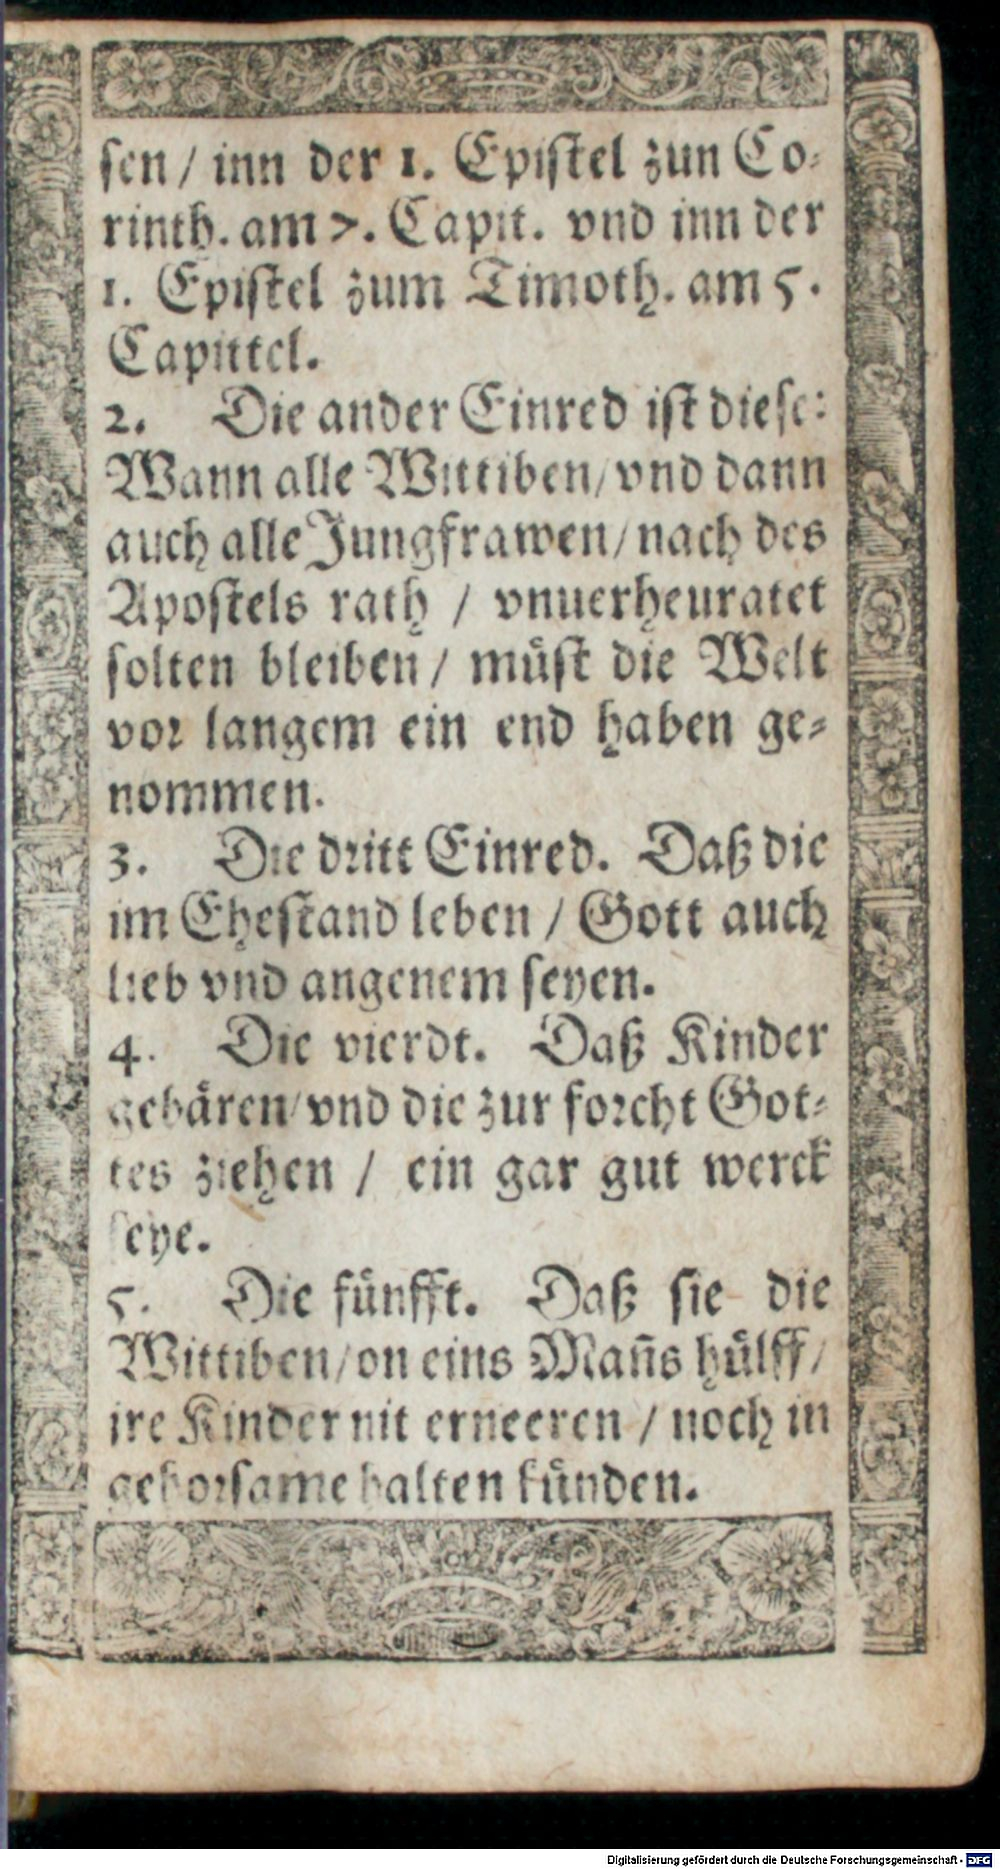 sen / inn der 1. Epistel zun Co-
rinth. am 7. Capit. vnd inn der
1. Epistel zum Timoth. am 5.
Capittel.
2. Die ander Einred ist diese:
Wann alle Wittiben / vnd dann
auch alle Jungfrawen / nach des
Apostels rath / vnuerheuratet
solten bleiben / müst die Welt
vor langem ein end haben ge-
nommen.
3. Die dritt Einred. Daß die
im Ehestand leben / Gott auch
lieb vnd angenem seyen.
4. Die vierdt. Daß Kinder
gebären / vnd die zur forcht Got-
tes ziehen / ein gar gut werck
seye.
5. Die fünfft. Daß sie die
Wittiben / on eins Mañs hülff /
ire Kinder nit erneeren / noch in
gehorsame halten künden.
Digitalisierung gefördert durch die Deutsche Forschungsgemeinschaft - DFG